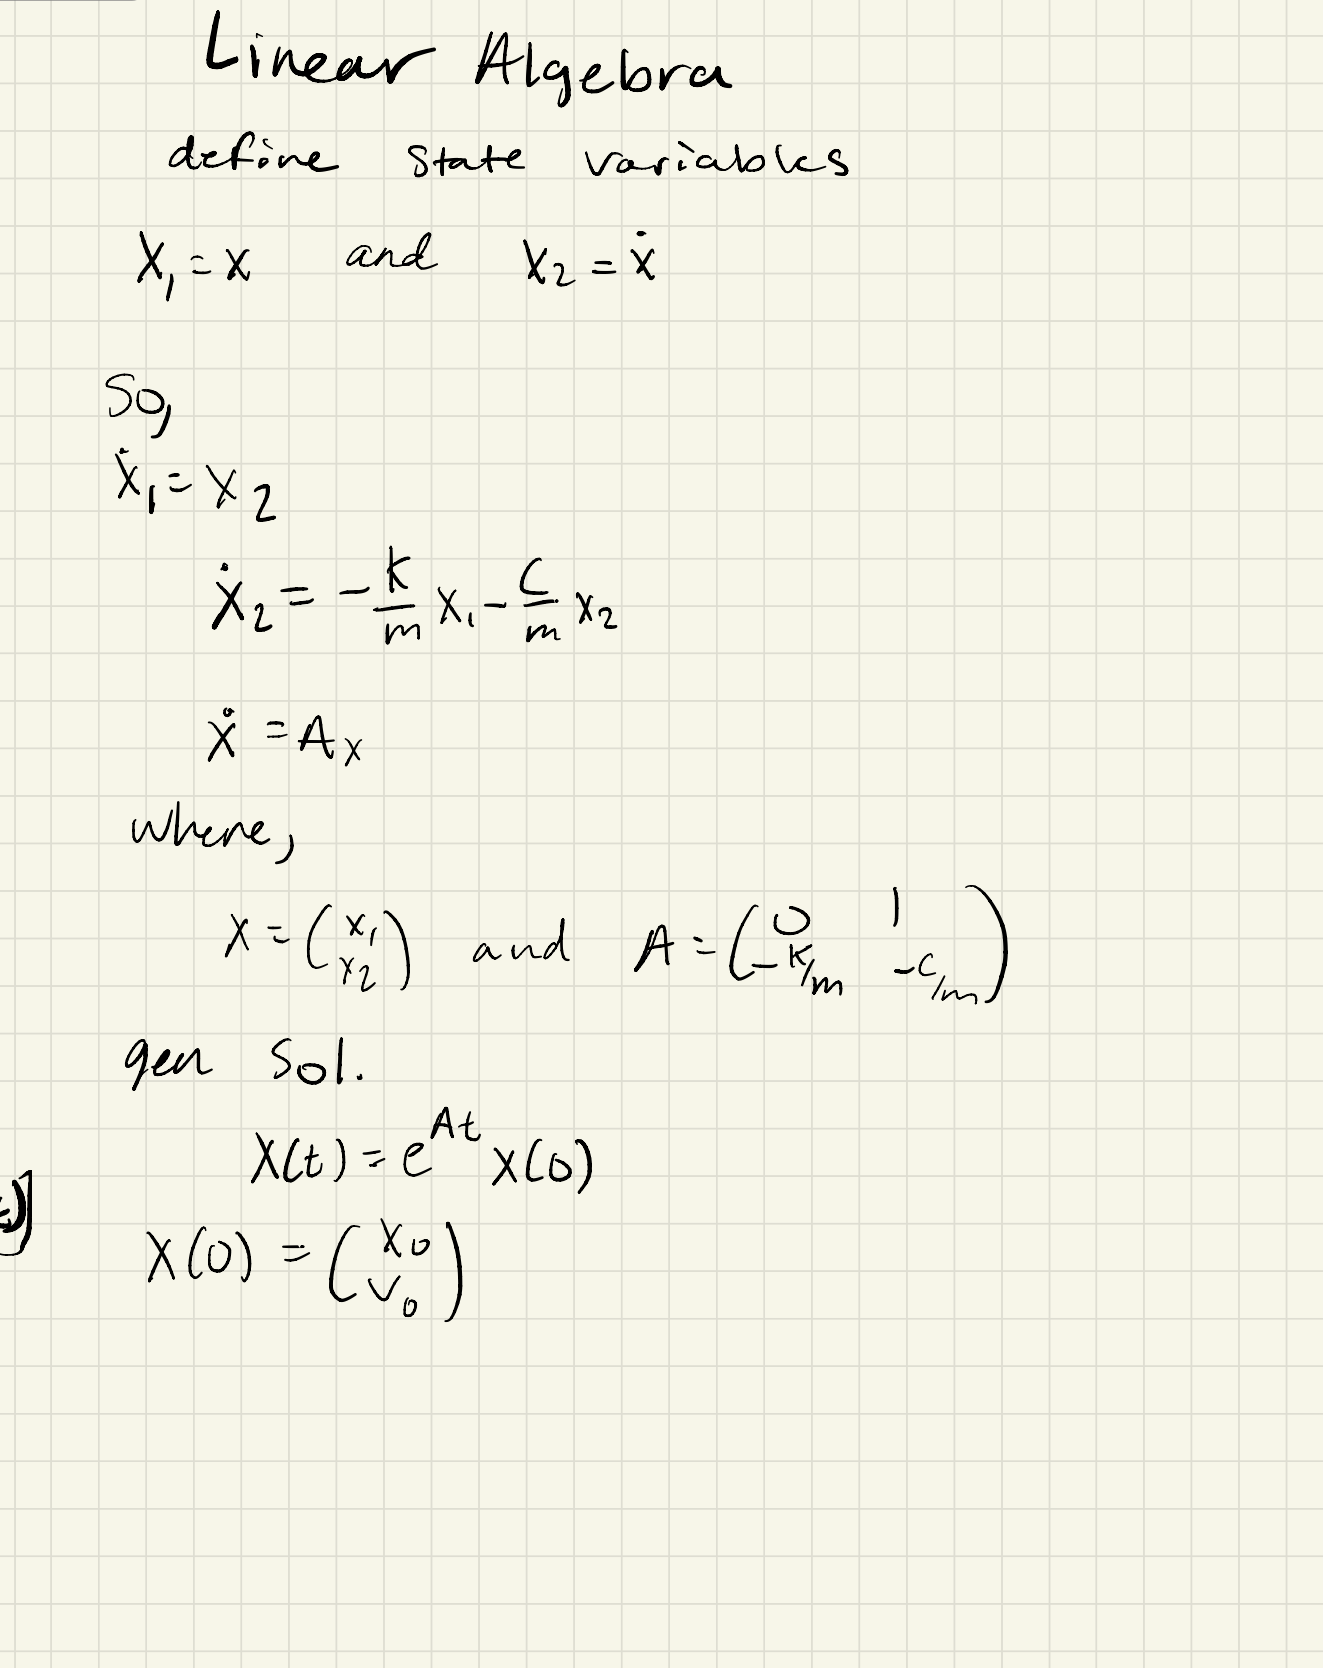 Linear Algebra
define state variables
x₁ = x and x₂ = ẋ
So,
ẋ₁ = x₂
ẋ₂ = -k/m x₁ - c/m x₂
ẋ = Ax
where,
x = (x₁ x₂) and A = (0 1 -k/m -c/m)
gen Sol.
x(t) = e^At x(0)
x(0) = (x₀ v₀)